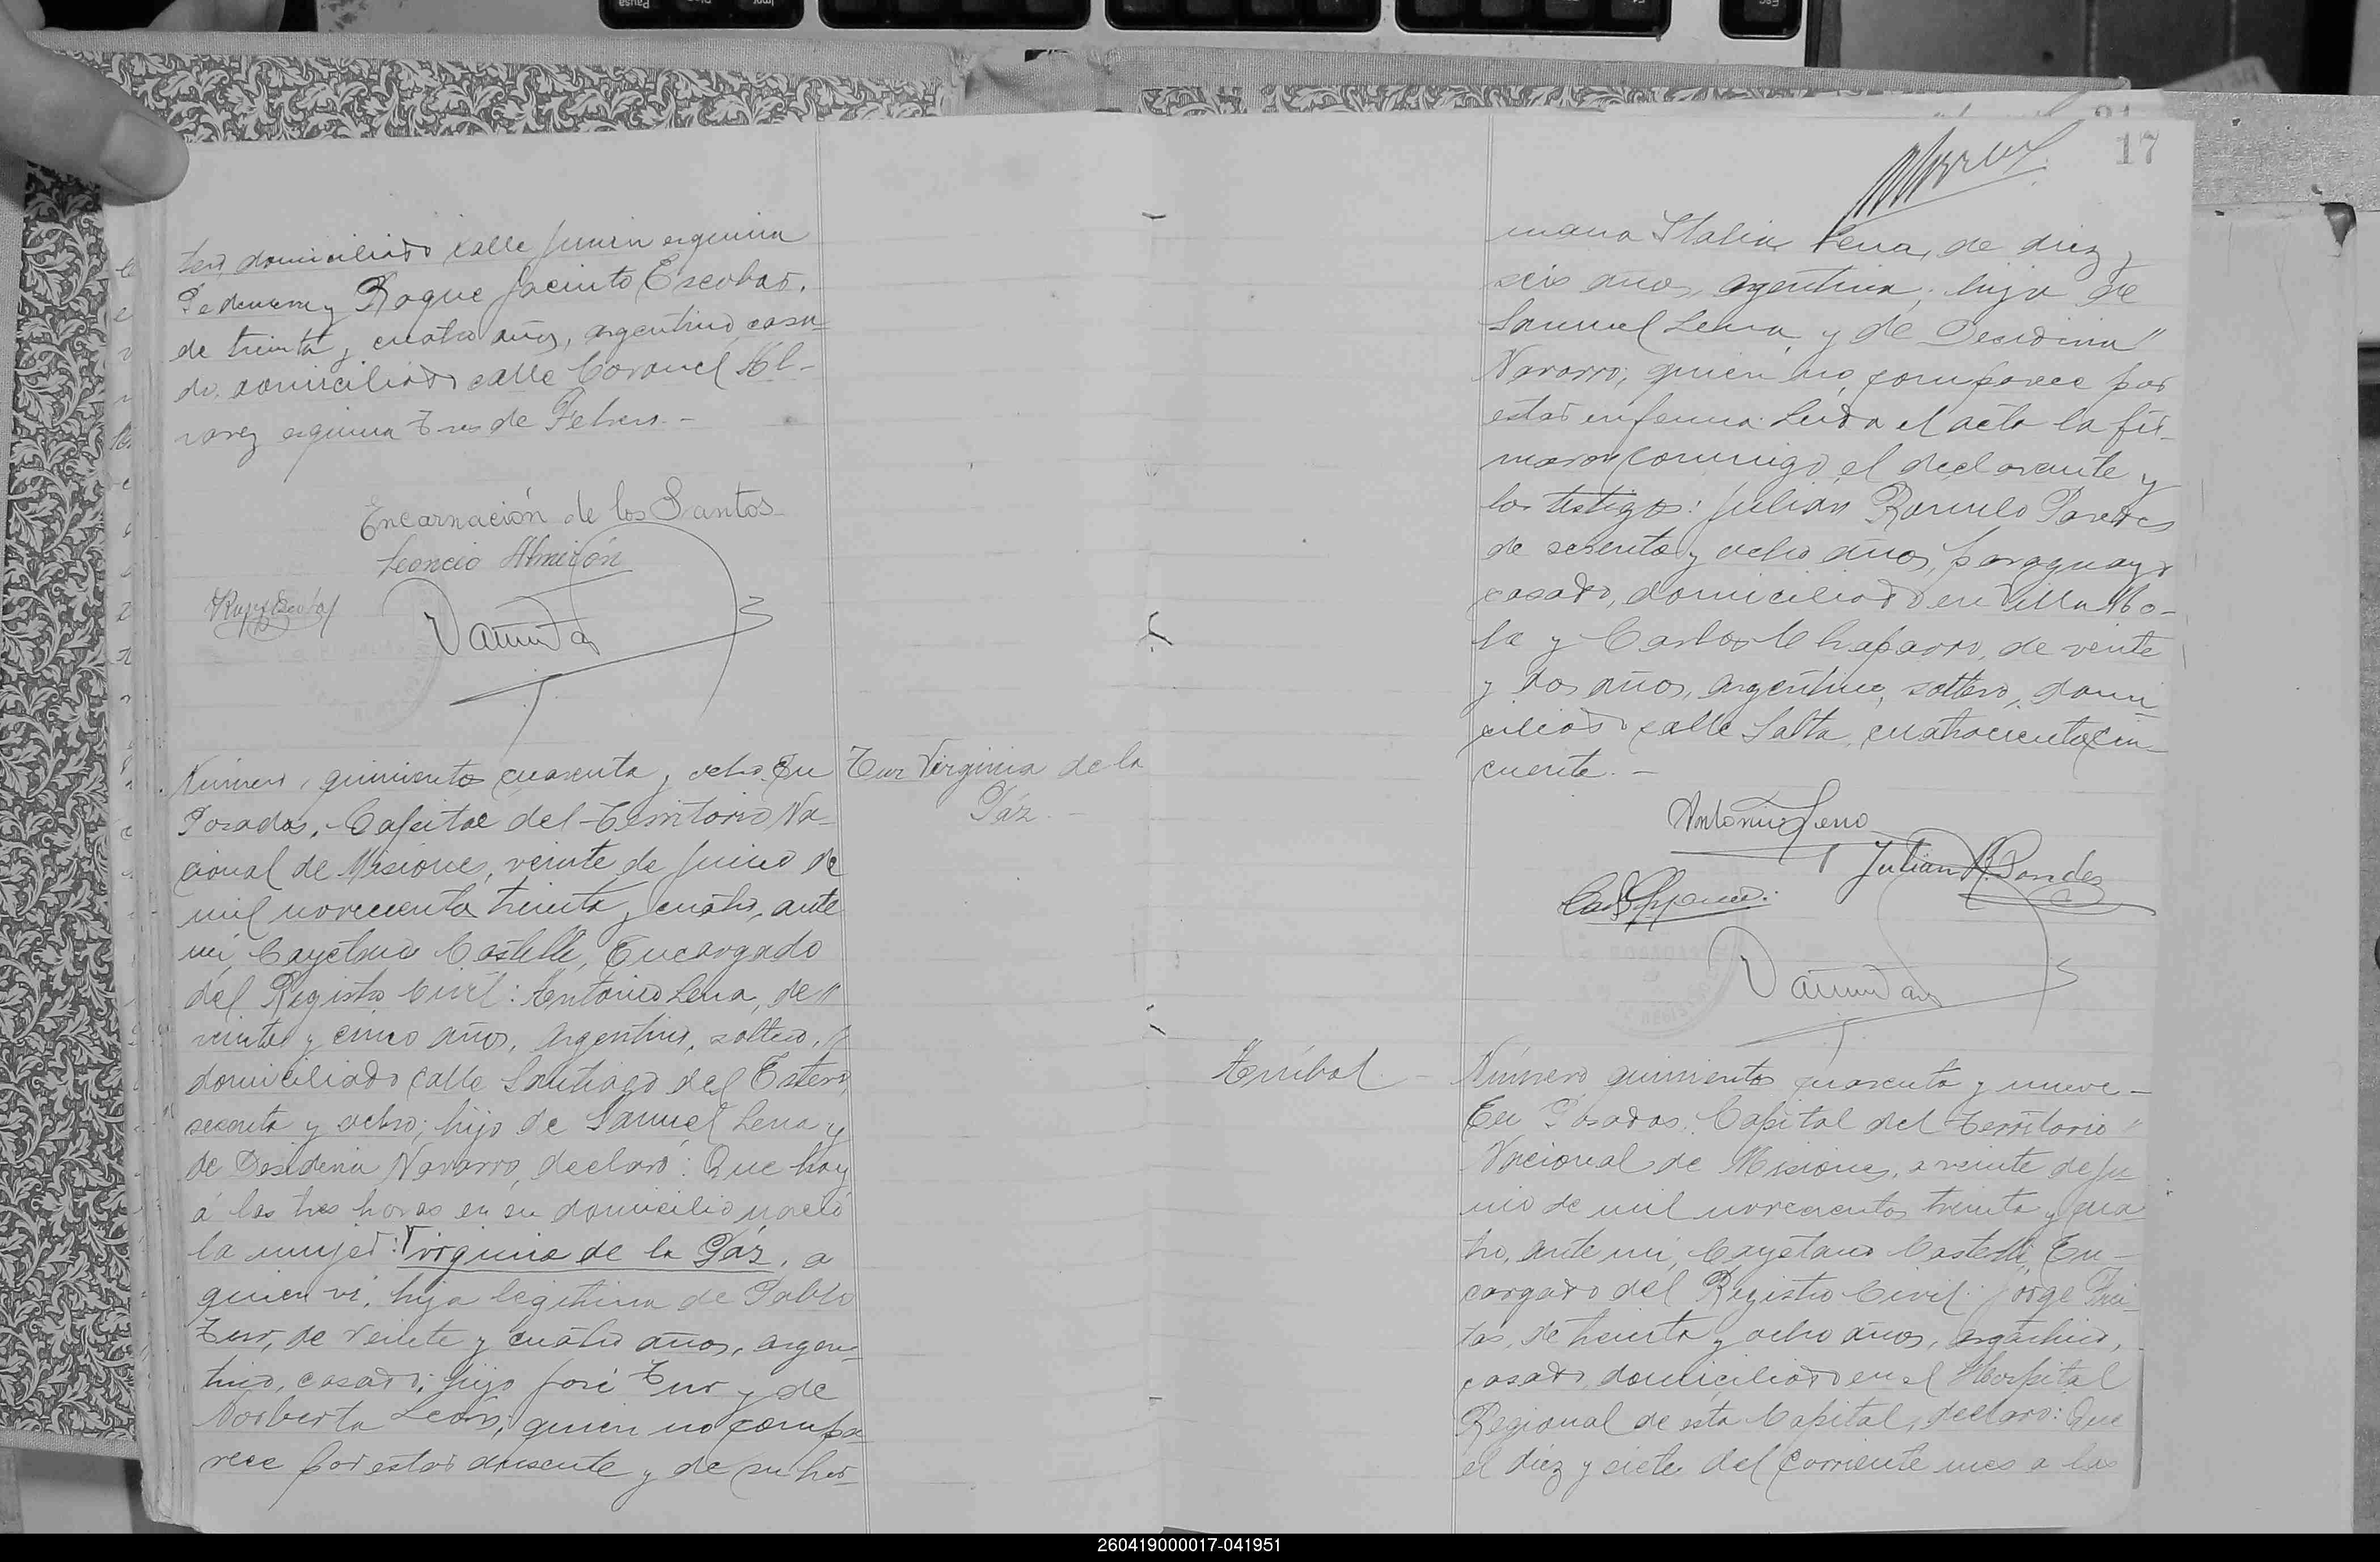 tero, domiciliado calle Junin esquina
Pedernera y Roque Jacinto Escobar,
de treinta y cuatro años, argentino, casa-
do, domiciliado calle Coronel Al-
varez esquina Tres de Febrero.-
Encarnación de los Santos
Leoncio Almirón
Número, quinientos cuarenta y ocho. En
Posadas, Capital del Territorio Na-
cional de Misiones, veinte de Junio de
mil novecientos treinta y cuatro, ante
mi, Cayetano Castelli, Encargado
del Registro Civil: Antonio Lena, de "
veinte y cinco años, argentino, soltero, "
domiciliado calle Santiago del Estero,
sesenta y ocho; hijo de Samuel Lena y
de Desideria Navarro, declaró: Que hoy
á las tres horas en su domicilio nació
la mujer: Virginia de la Páz, a
quien ví, hija legitima de Pablo
Tur, de veinte y cuatro años, argen-
tino, casado; hijo José Tur y de
Norberta León, quien no compa-
rece por estar ausente y de su her-
Tur Virginia de la
Páz.-
17
mana Italia Lena, de diez y
seis años, argentina; hija de
Samuel Lena y de Desideria "
Navarro; quien no comparece por
estar enferma. Leida el acta la fir-
maron conmigo el declarante y
los testigos: Julian Romulo Paredes
de sesenta y ocho años, paraguayo
casado, domiciliado en Villa
y Carlos Chaparro, de veinte
y dos años, argentino, soltero, domi-
ciliado calle Salta, cuatrocientos cin-
cuenta.-
Antonio Lena
Julian R. Paredes
Aníbal.-
Número quinientos cuarenta y nueve-
En Posadas. Capital del Territorio "
Nacional de Misiones, a veinte de Ju-
nio de mil novecientos treinta y cua-
tro, ante mi, Cayetano Castelli, En-
cargado del Registro Civil: Jorge
de treinta y ocho años, argentino,
casado, domiciliado en el Hospital
Regional de esta Capital, declaró: Que
el diez y siete del corriente mes a las
260419000017-041951